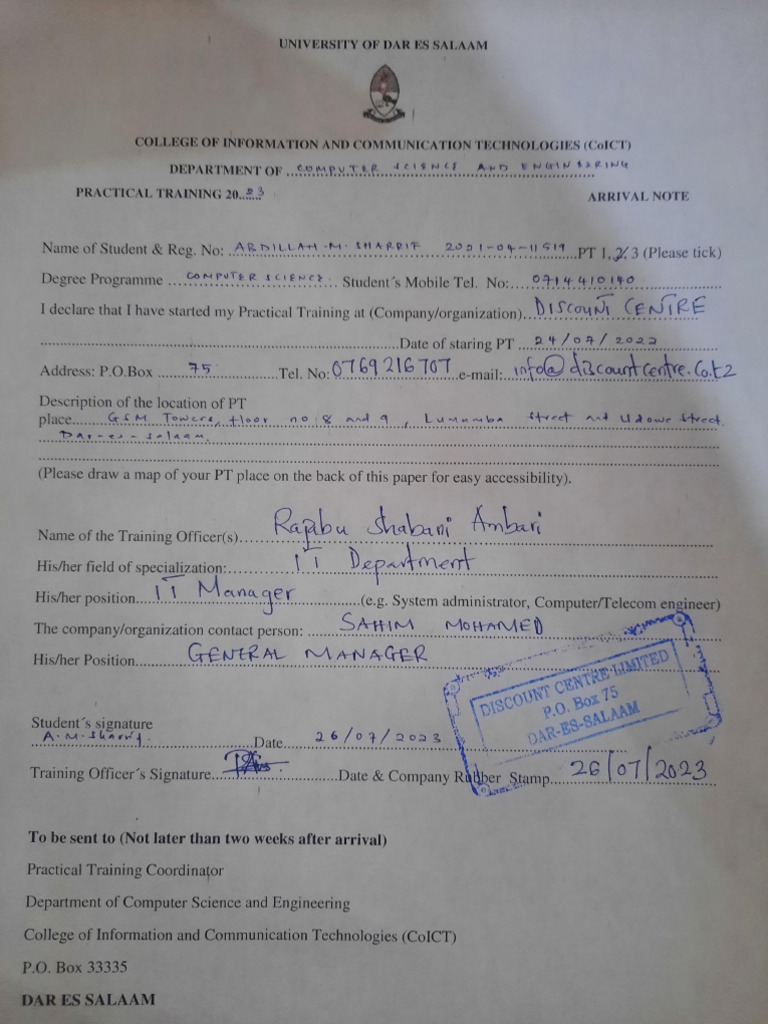 UNIVERSITY OF DAR ES SALAAM
COLLEGE OF INFORMATION AND COMMUNICATION TECHNOLOGIES (CoICT)
DEPARTMENT OF COMPUTER SCIENCE AND ENGINEERING
PRACTICAL TRAINING 20..23 ARRIVAL NOTE
Name of Student & Reg. No: ABDILLAH-M-SHARRIF 2021-04-11519 PT 1, 2, 3 (Please tick)
Degree Programme COMPUTER SCIENCE Student´s Mobile Tel. No: 0714410140
I declare that I have started my Practical Training at (Company/organization) DISCOUNT CENTRE
Date of staring PT 24/07/2023
Address: P.O.Box 75 Tel. No: 0769216707 e-mail: info@discountcentre.co.tz
Description of the location of PT
place GSM Towers, floor no 8 and 9, Lumumba Street and Udowe Street.
Dar-es-salaam.
(Please draw a map of your PT place on the back of this paper for easy accessibility).
Name of the Training Officer(s) Rajabu Shabani Ambari
His/her field of specialization: IT Department
His/her position IT Manager (e.g. System administrator, Computer/Telecom engineer)
The company/organization contact person: SAHIM MOHAMED
His/her Position GENERAL MANAGER
DISCOUNT CENTRE LIMITED
P.O. Box 75
DAR-ES-SALAAM
Student´s signature
A.M.Sharrif Date 26/07/2023
Training Officer´s Signature Date & Company Rubber Stamp 26/07/2023
To be sent to (Not later than two weeks after arrival)
Practical Training Coordinator
Department of Computer Science and Engineering
College of Information and Communication Technologies (CoICT)
P.O. Box 33335
DAR ES SALAAM